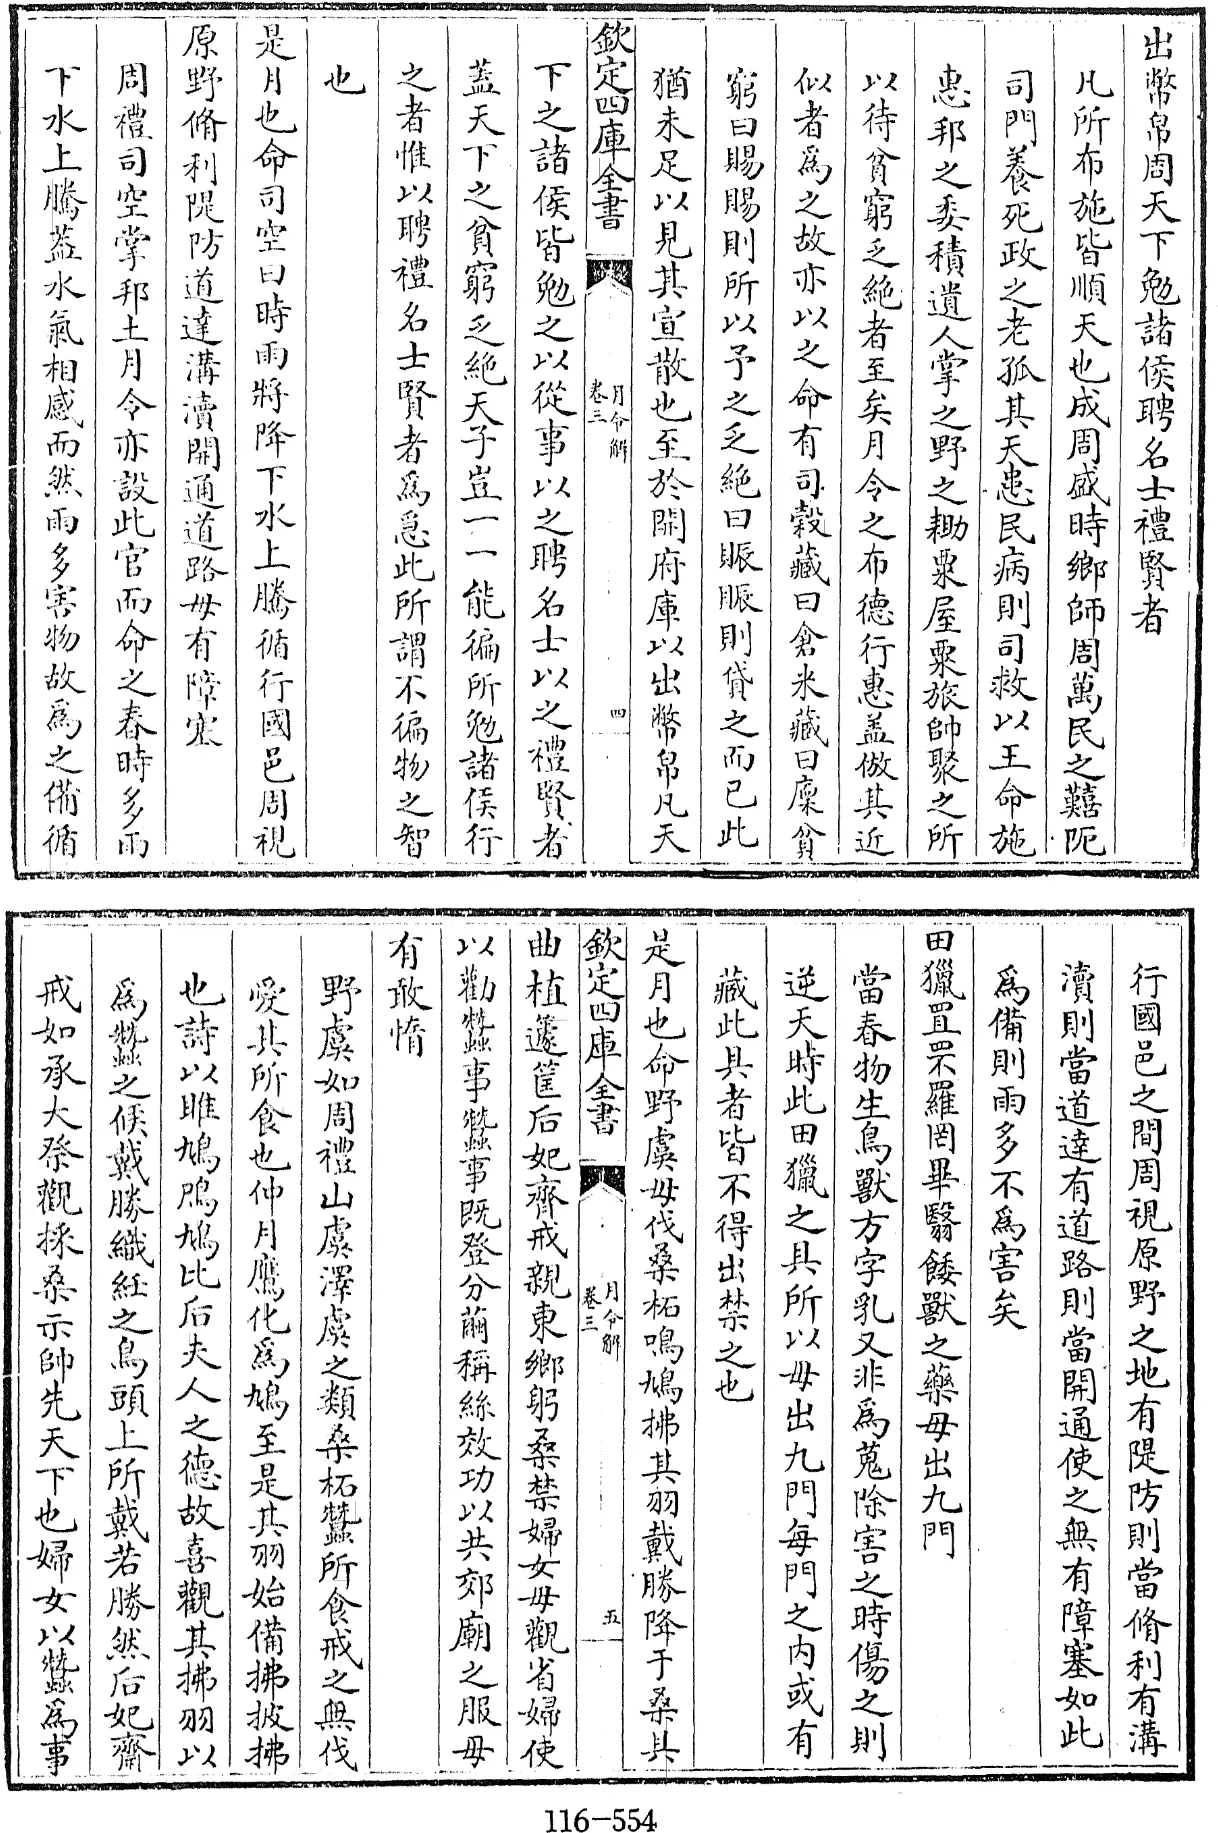 出幣帛周天下勉諸侯聘名士禮賢者
凡所布施皆順天也成周盛時鄉師周萬民之囏阨
司門養死政之老孤其天患民病則司救以王命施
惠邦之委積遺人掌之野之耡粟屋粟旅師聚之所
以待貧窮乏絶者至矣月令之布德行惠盖倣其近
似者爲之故亦以之命有司穀藏曰倉米藏曰廩貧
窮曰賜賜則所以予之乏絶曰賑賑則貸之而已此
猶未足以見其宣散也至於開府庫以出幣帛凡天
欽定四庫全書
月令解
卷三
四
下之諸侯皆勉之以從事以之聘名士以之禮賢者
蓋天下之貧窮乏絶天子豈一一能徧所勉諸侯行
之者惟以聘禮名士賢者爲急此所謂不徧物之智
也
是月也命司空曰時雨將降下水上騰循行國邑周視
原野脩利隄防道達溝瀆開通道路毋有障塞
周禮司空掌邦土月令亦設此官而命之春時多雨
下水上騰葢水氣相感而然雨多害物故爲之備循
行國邑之間周視原野之地有隄防則當脩利有溝
瀆則當道達有道路則當開通使之無有障塞如此
爲備則雨多不爲害矣
田獵罝罘羅罔畢翳餧獸之藥毋出九門
當春物生鳥獸方字乳又非爲蒐除害之時傷之則
逆天時此田獵之具所以毋出九門每門之内或有
藏此具者皆不得出禁之也
是月也命野虞毋伐桑柘鳴鳩拂其羽戴勝降于桑具
欽定四庫全書
月令解
卷三
五
曲植籧筐后妃齊戒親東鄉躬桑禁婦女毋觀省婦使
以勸蠶事蠶事既登分繭稱絲效功以共郊廟之服毋
有敢惰
野虞如周禮山虞澤虞之類桑柘蠶所食戒之無伐
愛其所食也仲月鷹化爲鳩至是其羽始備拂披拂
也詩以雎鳩鳲鳩比后夫人之德故喜觀其拂羽以
爲蠶之候戴勝織紝之鳥頭上所戴若勝然后妃齋
戒如承大祭觀採桑示帥先天下也婦女以蠶爲事
116-554